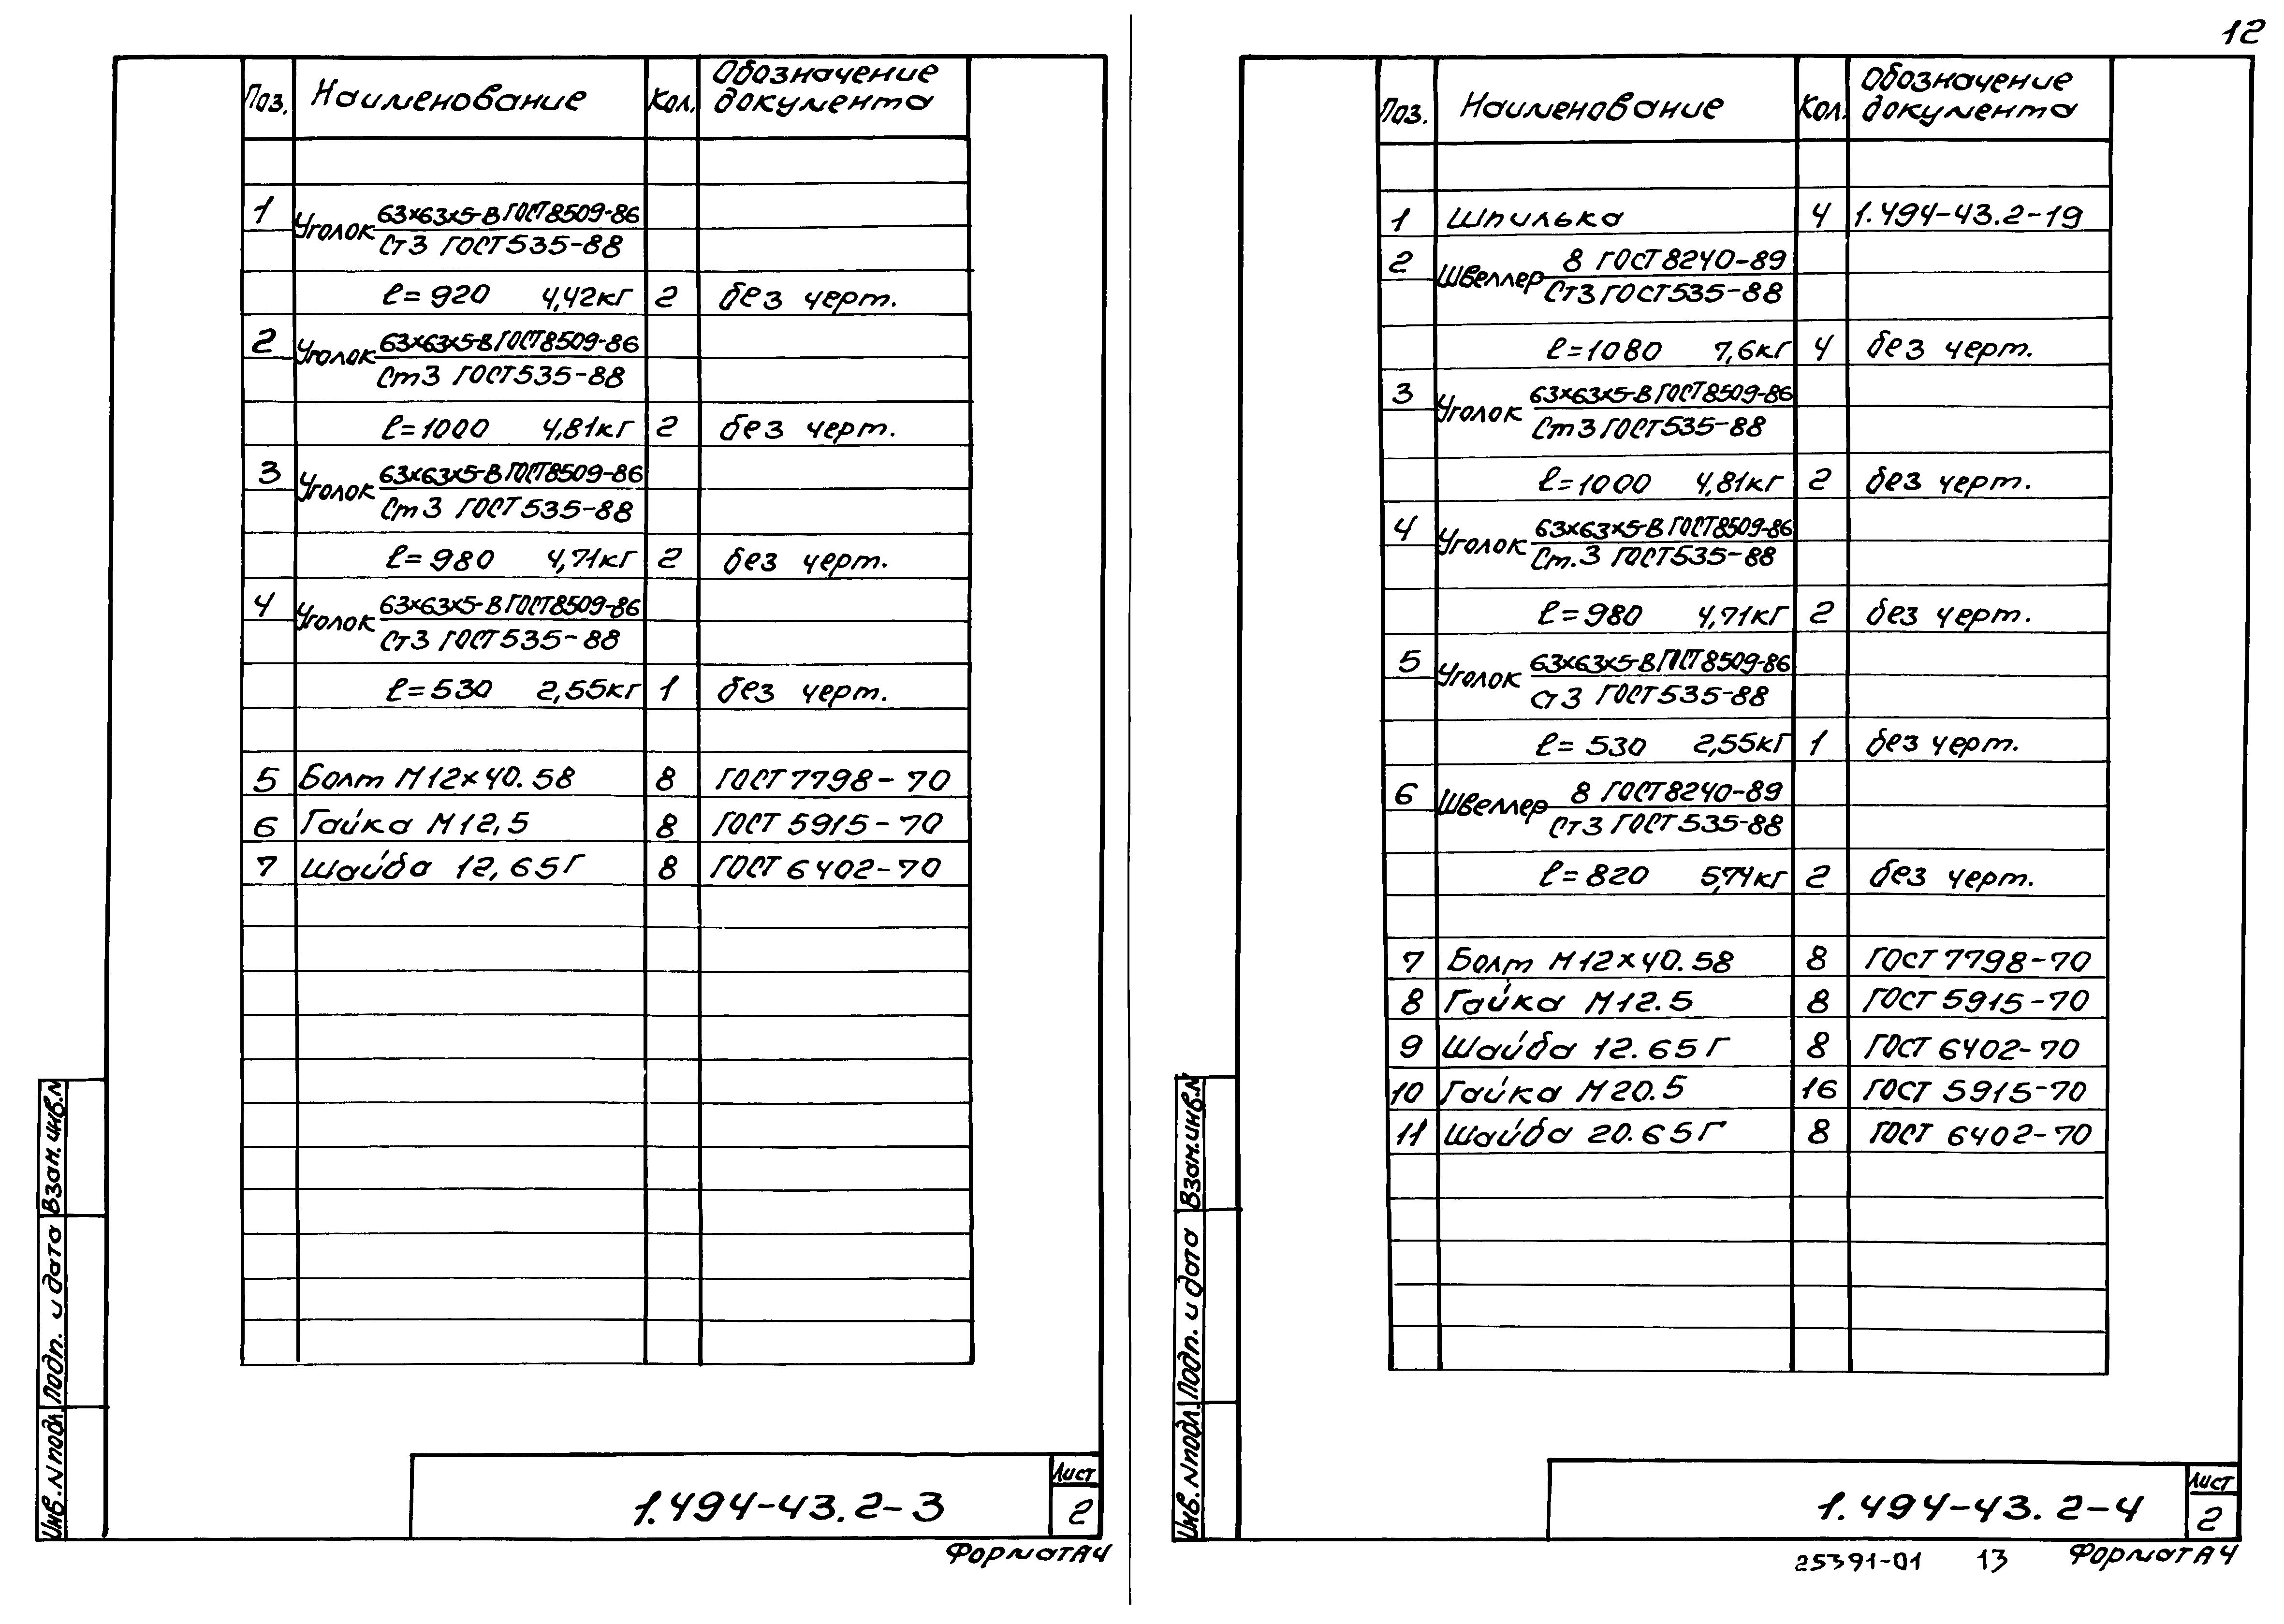 12
Поз. Наименование Кол. Обозначение документа
1 Уголок 63×63×5-В ГОСТ 8509-86
Ст3 ГОСТ 535-88
ℓ=920 4,42кг 2 без черт.
2 Уголок 63×63×5-В ГОСТ 8509-86
Ст3 ГОСТ 535-88
ℓ=1000 4,81кг 2 без черт.
3 Уголок 63×63×5-В ГОСТ 8509-86
Ст3 ГОСТ 535-88
ℓ=980 4,71кг 2 без черт.
4 Уголок 63×63×5-В ГОСТ 8509-86
Ст3 ГОСТ 535-88
ℓ=530 2,55кг 1 без черт.
5 Болт М12×40.58 8 ГОСТ 7798-70
6 Гайка М12,5 8 ГОСТ 5915-70
7 Шайба 12,65Г 8 ГОСТ 6402-70
Взам.инв.N
Подп. и дата
Инв.N подл.
1.494-43.2-3
Лист
2
Формат А4
Поз. Наименование Кол. Обозначение документа
1 Шпилька 4 1.494-43.2-19
2 Швеллер 8 ГОСТ 8240-89
Ст3 ГОСТ 535-88
ℓ=1080 7,6кг 4 без черт.
3 Уголок 63×63×5-В ГОСТ 8509-86
Ст3 ГОСТ 535-88
ℓ=1000 4,81кг 2 без черт.
4 Уголок 63×63×5-В ГОСТ 8509-86
Ст.3 ГОСТ 535-88
ℓ=980 4,71кг 2 без черт.
5 Уголок 63×63×5-В ГОСТ 8509-86
Ст3 ГОСТ 535-88
ℓ=530 2,55кг 1 без черт.
6 Швеллер 8 ГОСТ 8240-89
Ст3 ГОСТ 535-88
ℓ=820 5,74кг 2 без черт.
7 Болт М12×40.58 8 ГОСТ 7798-70
8 Гайка М12.5 8 ГОСТ 5915-70
9 Шайба 12.65Г 8 ГОСТ 6402-70
10 Гайка М20.5 16 ГОСТ 5915-70
11 Шайба 20.65Г 8 ГОСТ 6402-70
Взам.инв.N
Подп. и дата
Инв.N подл.
1.494-43.2-4
Лист
2
25391-01 13 Формат А4